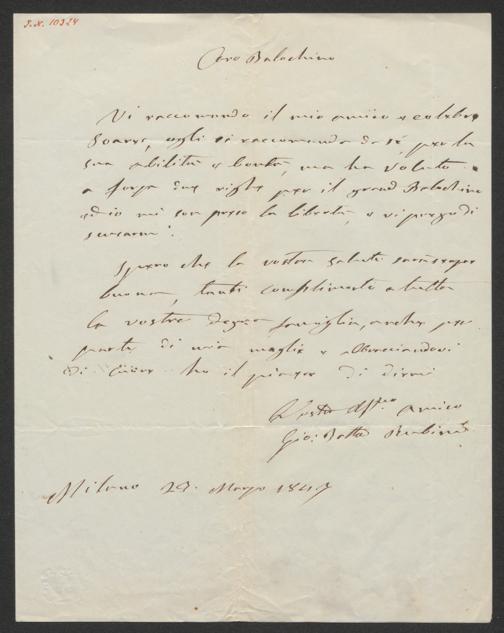 J.N. 10324
Caro Balochino
Vi raccomando il mio amico e celebre
Soarez, egli si raccomanda da sé, per la
sua abilità e bontà, ma ha voluto
a forza due righe per il grand Balochino
ed io mi son preso la libertà, e vi prego di
scusarmi.
Spero che la vostra salute sarà sempre
buona, tanti complimenti a tutta
la vostra degna famiglia, anche per
parte di mia moglie e abbracciandovi
di cuore ho il piacer di dirmi
Vostro Aff.mo Amico
Gio: Batta Rubini
Milano 29. Marzo 1847